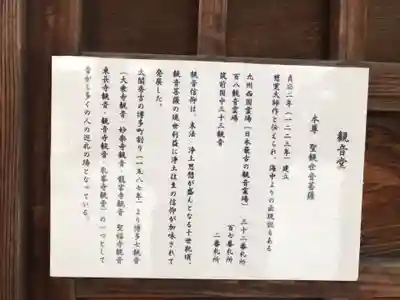 観音堂
本尊 聖観世音菩薩
貞応二年（一二二三年）建立
慈覚大師作と伝えられ、海中よりの出現説もある
九州西国霊場（日本最古の観音霊場） 三十二番札所
百八観音霊場 百七番札所
筑前国中三十三観音 二番札所
観音信仰は、末法・浄土思想が盛んとなる十世紀頃、
観音菩薩の現世利益に浄土往生の信仰が加味されて
発展した。
太閤秀吉の博多町割り（一五八七年）より博多七観音
（大乗寺観音・妙楽寺観音・龍宮寺観音・聖福寺観音
東長寺観音・観音寺観音・乳峯寺観音）の一つとして
昔から多くの人の巡礼の場となっている。